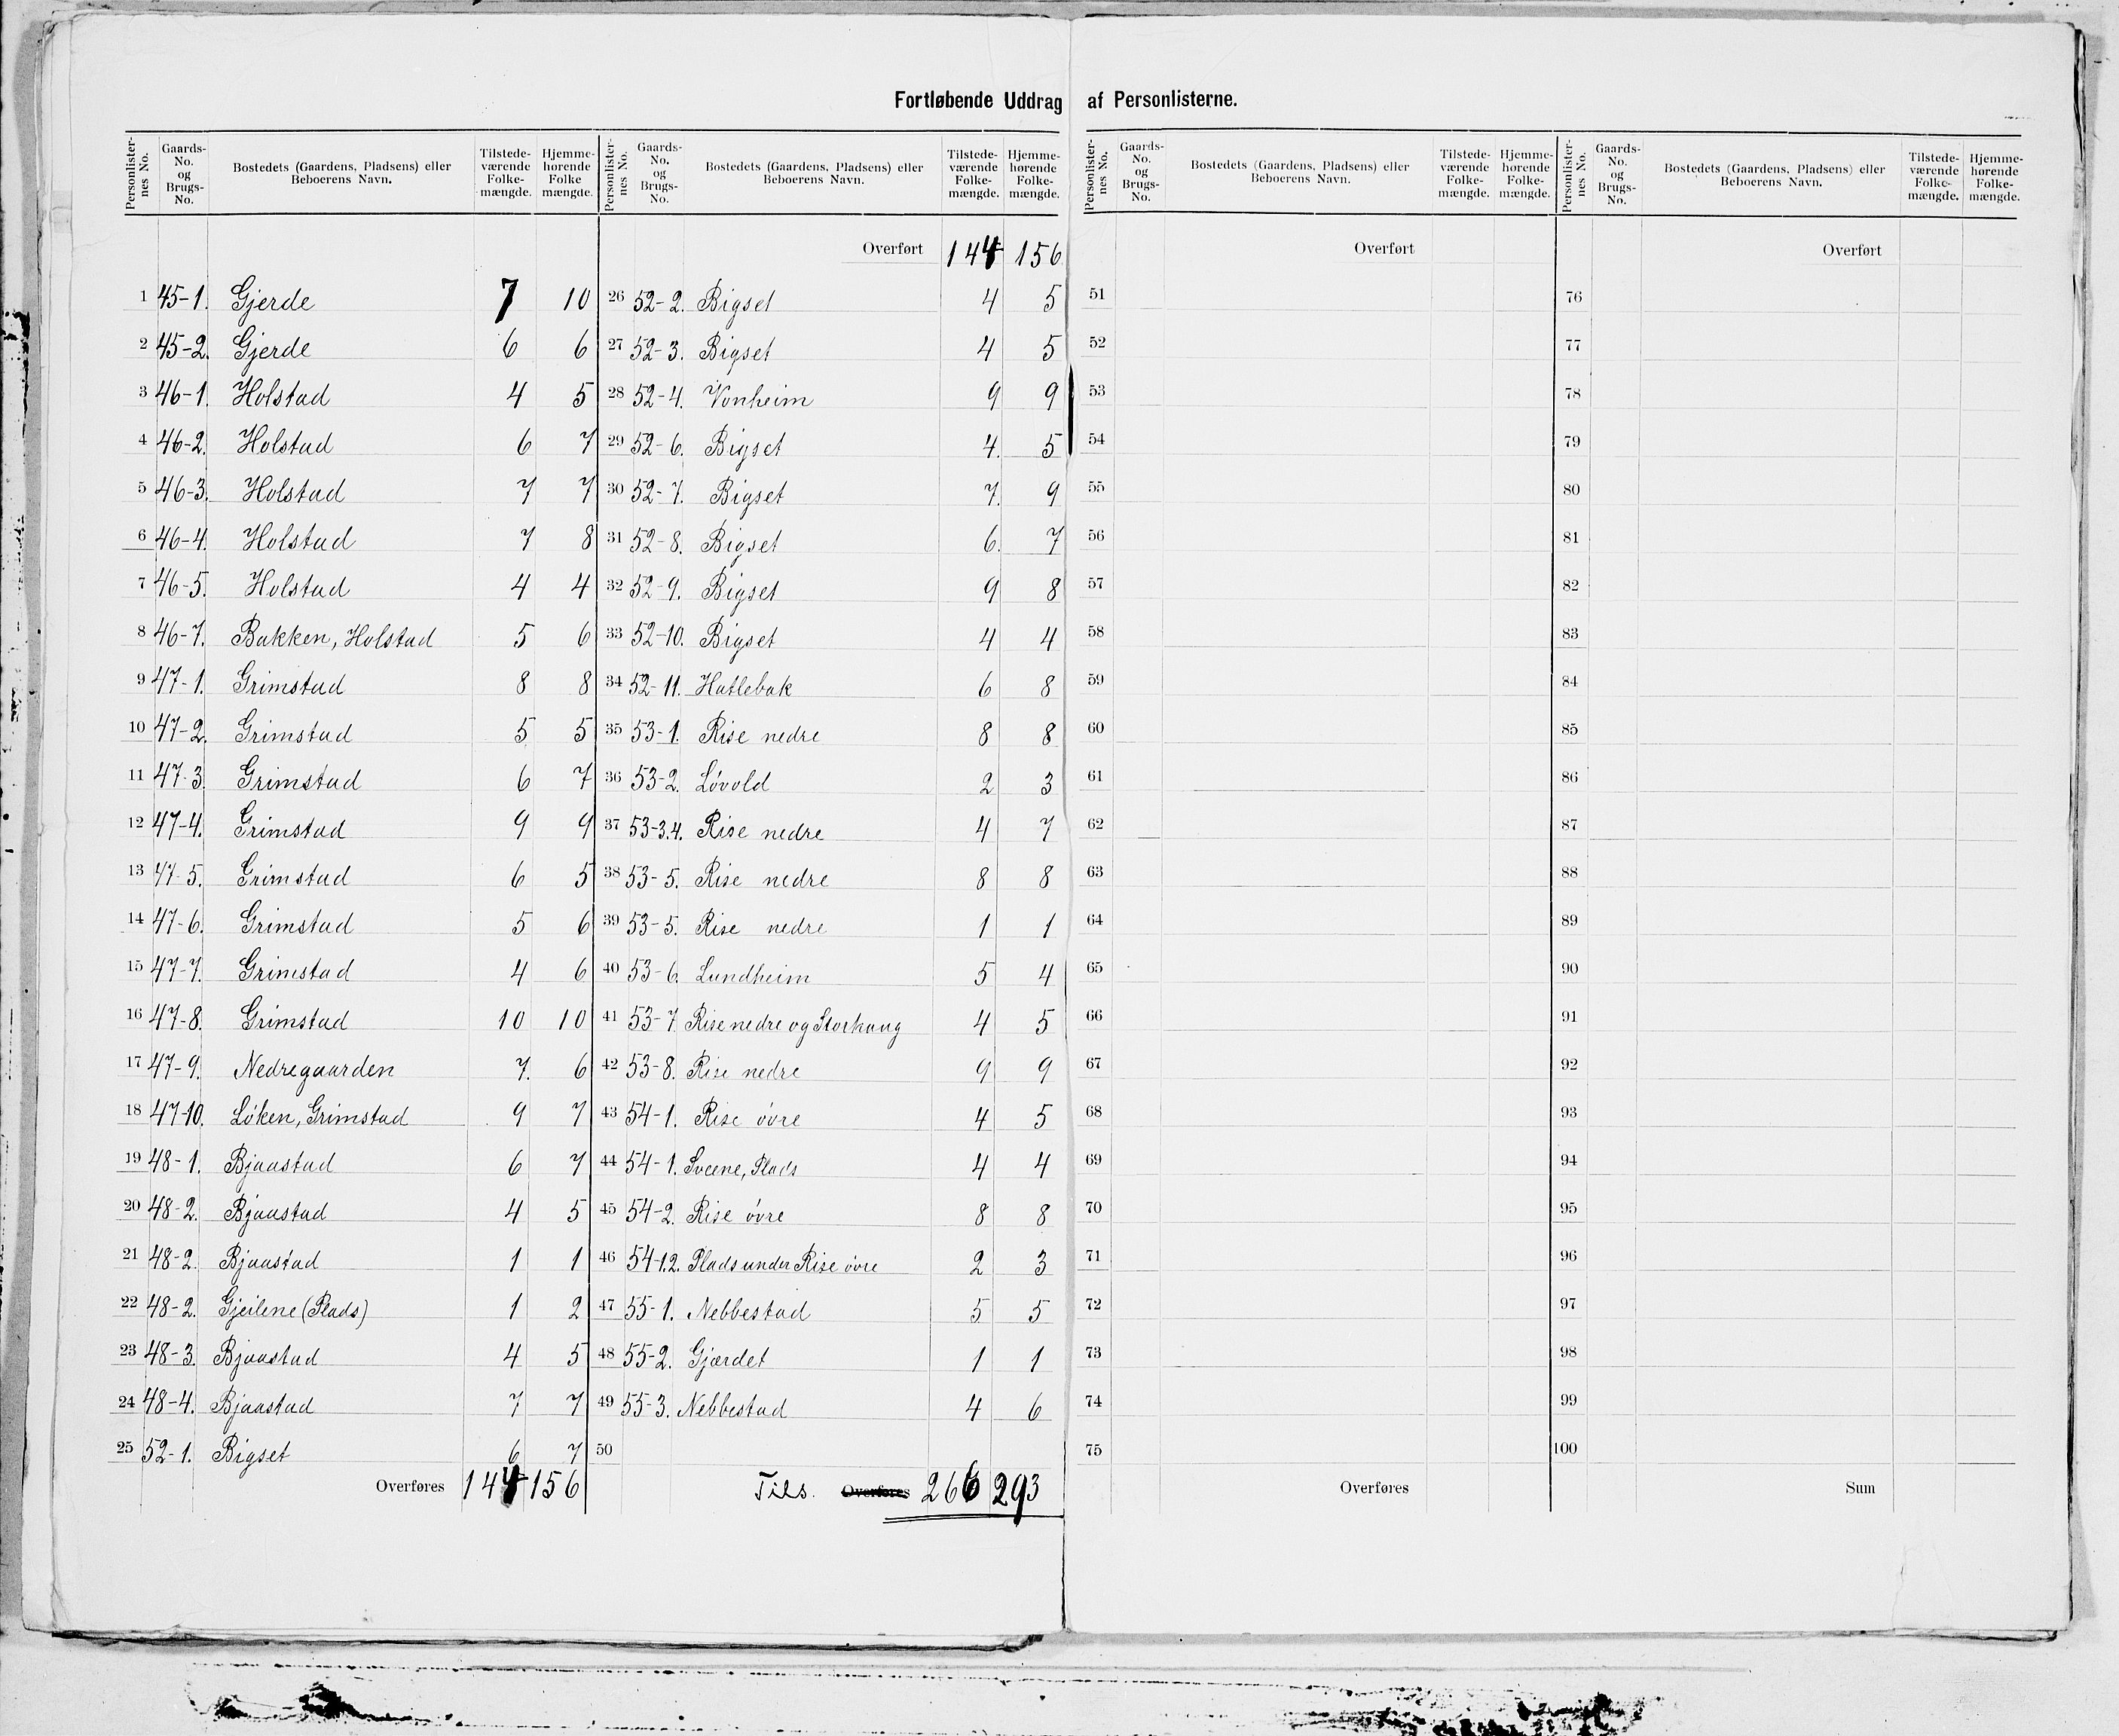 Fortløbende Uddrag af Personlisterne.
Personlister-nes No. Gaards-No. og Brugs-No. Bostedets (Gaardens, Pladsens) eller Beboerens Navn. Tilstede-værende Folke-mængde. Hjemme-hørende Folke mængde.
1 45-1. Gjerde 7 10
2 45-2. Gjerde 6 6
3 46-1. Holstad 4 5
4 46-2. Holstad 6 7
5 46-3. Holstad 7 7
6 46-4. Holstad 7 8
7 46-5. Holstad 4 4
8 46-7. Bakken, Holstad 5 6
9 47-1. Grimstad 8 8
10 47-2. Grimstad 5 5
11 47-3. Grimstad 6 7
12 47-4. Grimstad 9 9
13 47-5. Grimstad 6 5
14 47-6. Grimstad 5 6
15 47-7. Grimstad 4 6
16 47-8. Grimstad 10 10
17 47-9. Nedregaarden 7. 6
18 47-10. Løken, Grimstad 9 7
19 48-1. Bjaastad 6 7
20 48-2. Bjaastad 4 5
21 48-2. Bjaastad 1 1
22 48-2. Gjeilene (Plads) 1 2
23 48-3. Bjaastad 4 5
24 48-4. Bjaastad 7 7
25 52-1. Bigset 6 7
Overføres 144 156
Personlister-nes No. Gaards-No. og Brugs-No. Bostedets (Gaardens, Pladsens) eller Beboerens Navn. Tilstede-værende Folke-mængde. Hjemme-hørende Folke-mængde.
Overført 144 156
26 52-2. Bigset 4 5
27 52-3. Bigset 4 5
28 52-4. Vonheim 9 9
29 52-6. Bigset 4. 5
30 52-7. Bigset 7. 9
31 52-8. Bigset 6. 7
32 52-9. Bigset 9 8
33 52-10. Bigset 4 4
34 52-11. Hatlebak 6 8
35 53-1. Rise nedre 8 8
36 53-2. Løvold 2 3
37 53-3.4. Rise nedre 4 7
38 53-5. Rise nedre 8 8
39 53-5. Rise nedre 1 1
40 53-6. Lundheim 5 4
41 53-7. Rise nedre og Storhaug 4 5
42 53-8. Rise nedre 9 9
43 54-1. Rise øvre 4 5
44 54-1. Sveene, Plads 4 4
45 54-2. Rise øvre 8 8
46 54-1.2. Plads under Rise øvre 2 3
47 55-1. Nebbestad 5 5
48 55-2. Gjærdet 1 1
49 55-3. Nebbestad 4 6
50
Tils. Overføres 266 293
Personlister-nes No. Gaards-No. og Brugs-No. Bostedets (Gaardens, Pladsens) eller Beboerens Navn. Tilstede-værende Folke-mængde. Hjemme-hørende Folke-mængde.
Overført
51
52
53
54
55
56
57
58
59
60
61
62
63
64
65
66
67
68
69
70
71
72
73
74
75
Overføres
Personlister-nes No. Gaards-No. og Brugs-No. Bostedets (Gaardens, Pladsens) eller Beboerens Navn. Tilstede-værende Folke-mængde. Hjemme-hørende Folke-mængde.
Overført
76
77
78
79
80
81
82
83
84
85
86
87
88
89
90
91
92
93
94
95
96
97
98
99
100
Sum